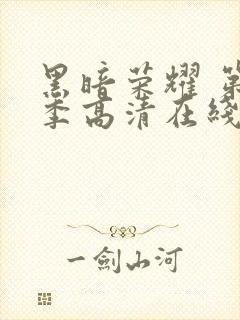 黑暗荣耀 第
季高清在线
一劍山河